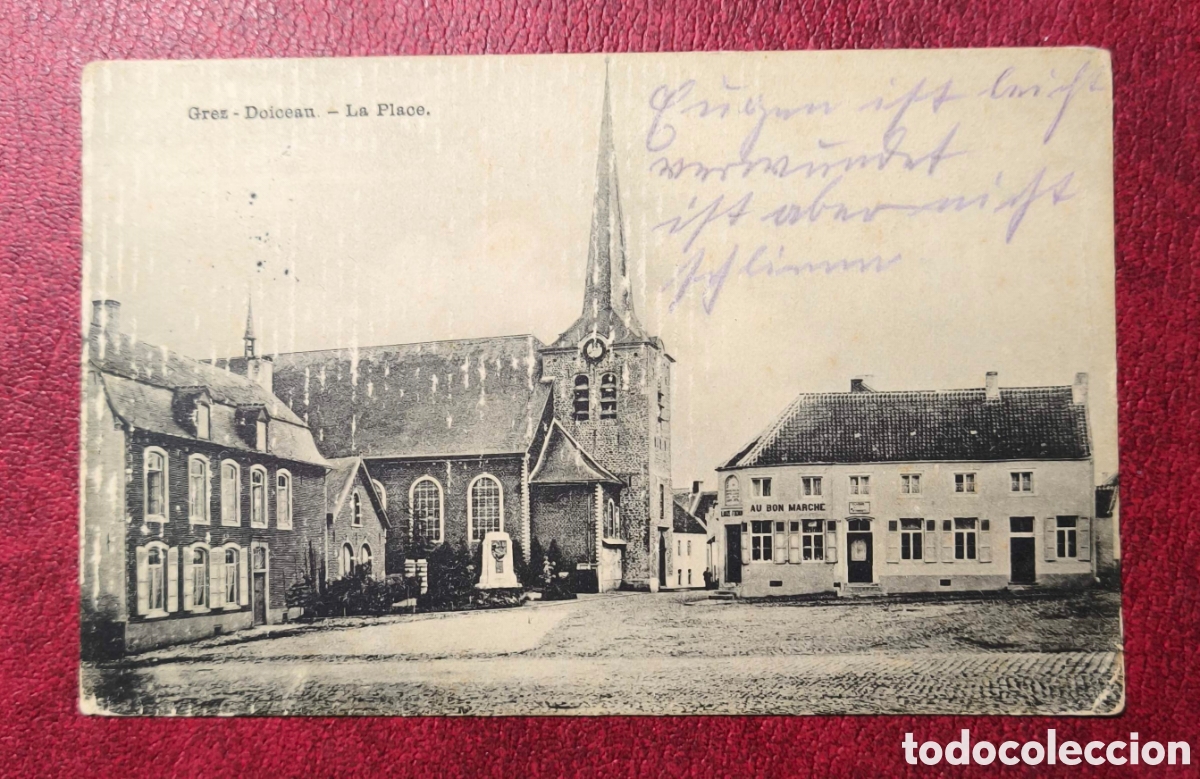 Grez - Doiceau. - La Place.
Eugen ist leicht
verwundet
ist aber nicht
schlimm
AU BON MARCHE
todocoleccion.net